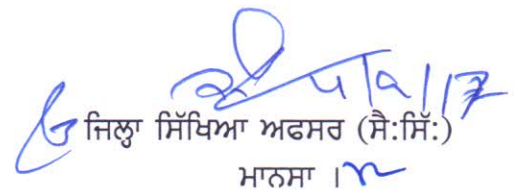 ਜਿਲ੍ਹਾ ਸਿੱਖਿਆ ਅਫਸਰ (ਸੈ:ਸਿੱ:)
ਮਾਨਸਾ ।